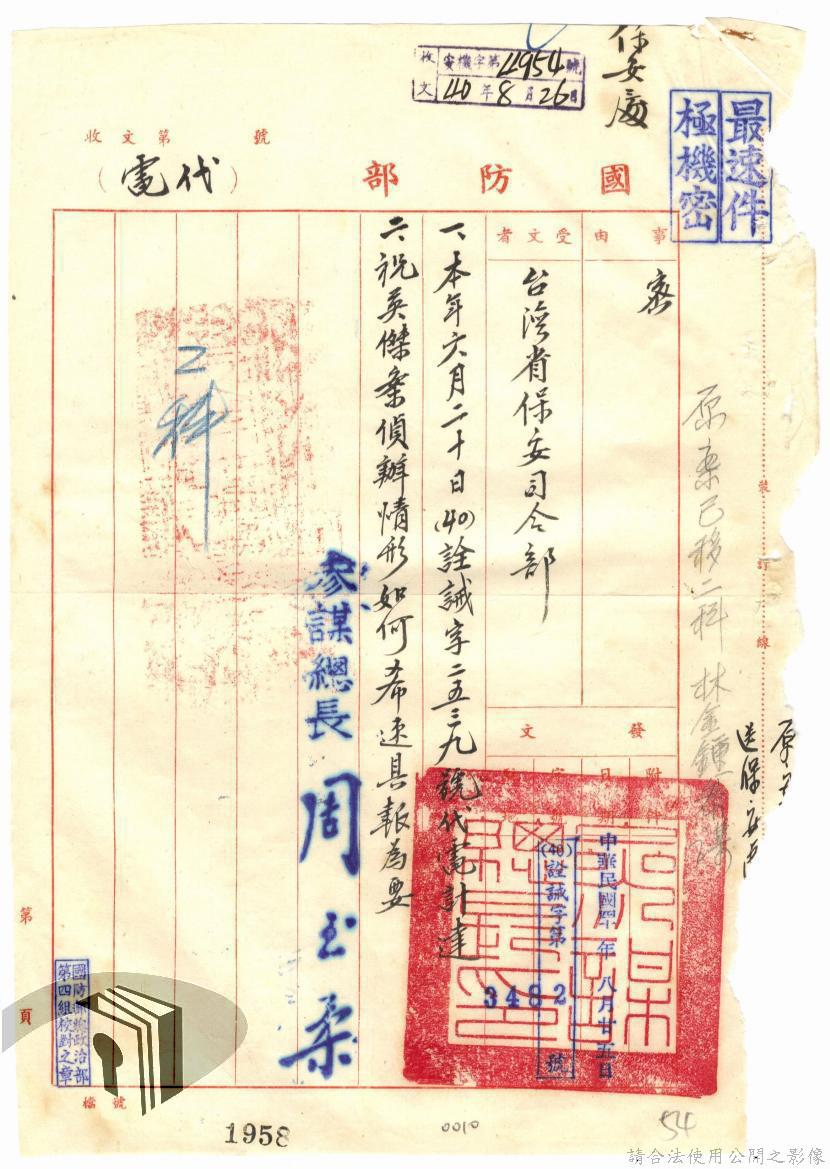 保安處
收文 安機字第4954號
40年8月26日
最速件
極機密
收文第 號
國防部
(代電)
事由
受文者
密
台灣省保安司令部
一、本年六月二十日(40)詮誠字二五三九號代電計達
二、祝英傑案偵辦情形如何希速具報為要
參謀總長 周至柔
二科
原案已移二科 林金
送保安處
裝訂線
發文
附件
中華民國四十年八月廿五日
(40)詮誠字第3482號
國防部總政治部
第四組校對之章
第 頁
檔號
1958
0010
54
請合法使用公開之影像